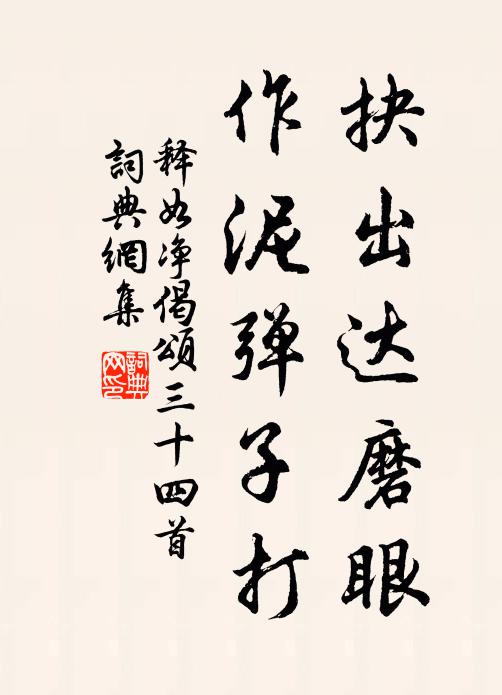 抉出达磨眼
作泥弹子打
释如净偈颂三十四首
詞典網集
詞典网印